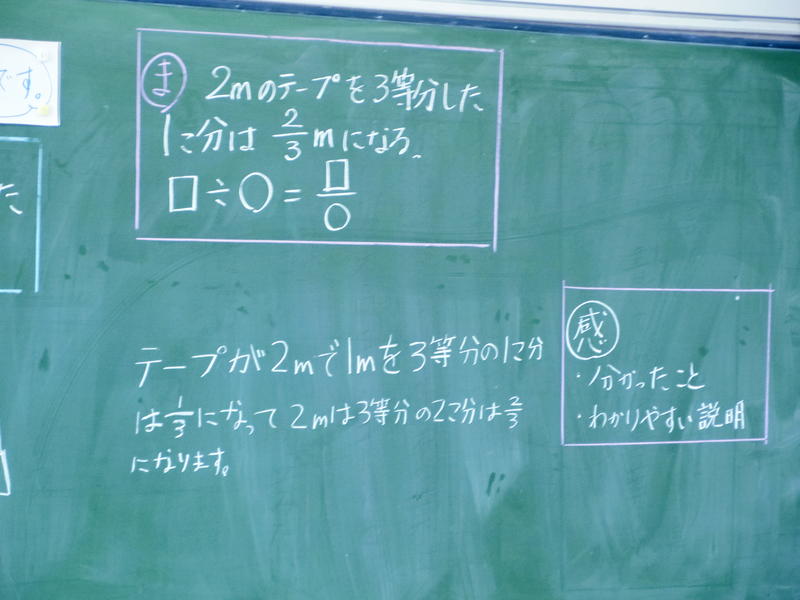 です。
た
ま 2mのテープを3等分した
1こ分は 2/3 mになる。
□÷○=□/○
テープが2mで1mを3等分の1こ分
は1/3になって2mは3等分の2こ分は2/3
になります。
感
・分かったこと
・わかりやすい説明